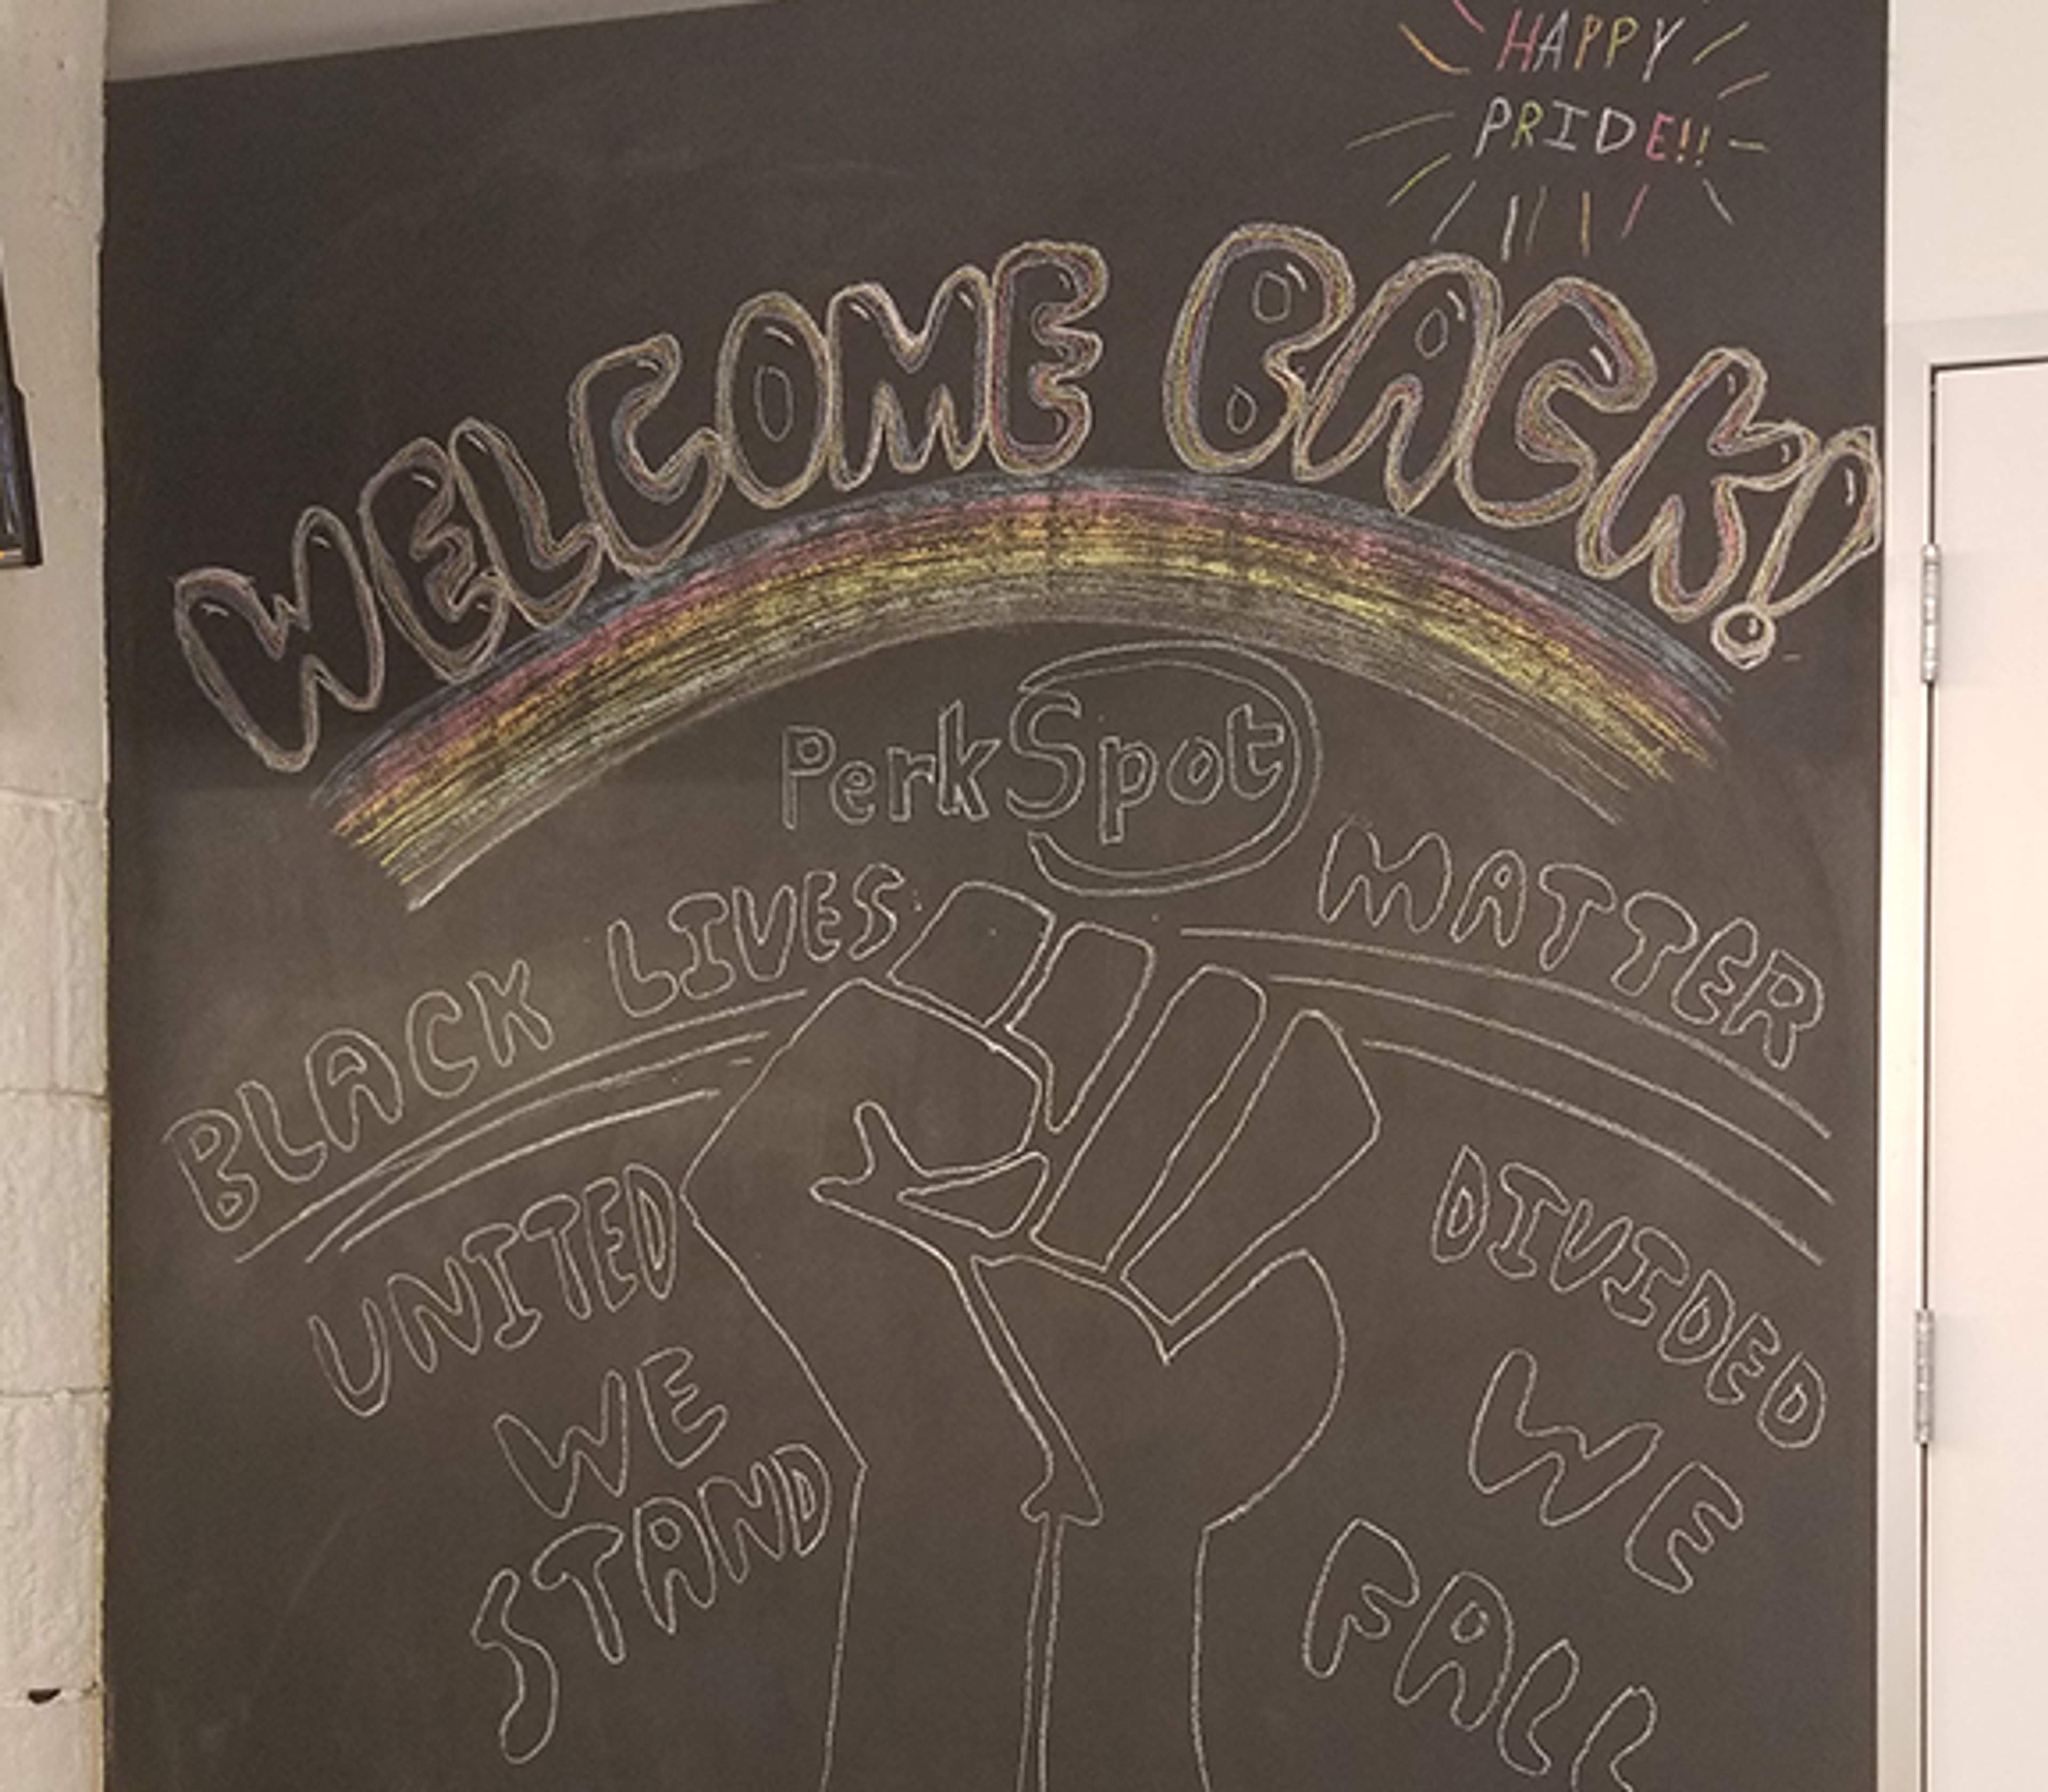 HAPPY
PRIDE!!
WELCOME BACK!
PerkSpot
BLACK LIVES MATTER
UNITED
WE
STAND
DIVIDED
WE
FALL